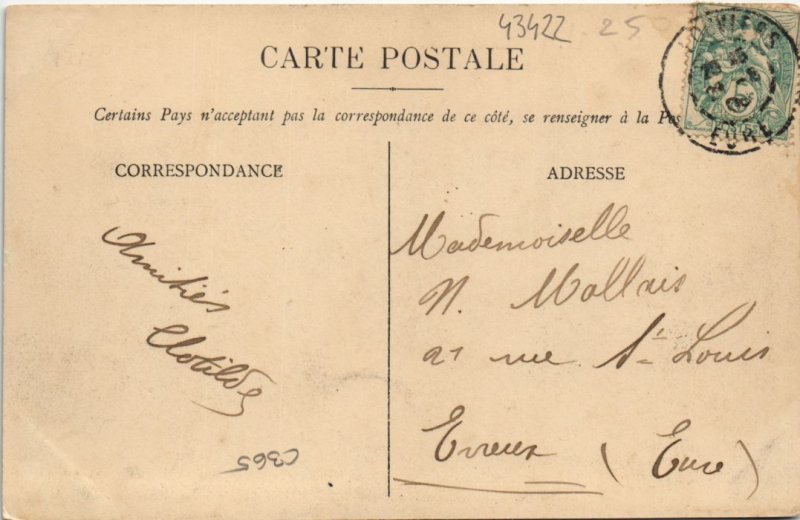 43422 25
CARTE POSTALE
LOUVIERS
EURE
Certains Pays n'acceptant pas la correspondance de ce côté, se renseigner à la Pos
CORRESPONDANCE
Amitiés
Clotilde
C365
ADRESSE
Mademoiselle
N. Mallais
21 rue St Louis
Evreux (Eure)